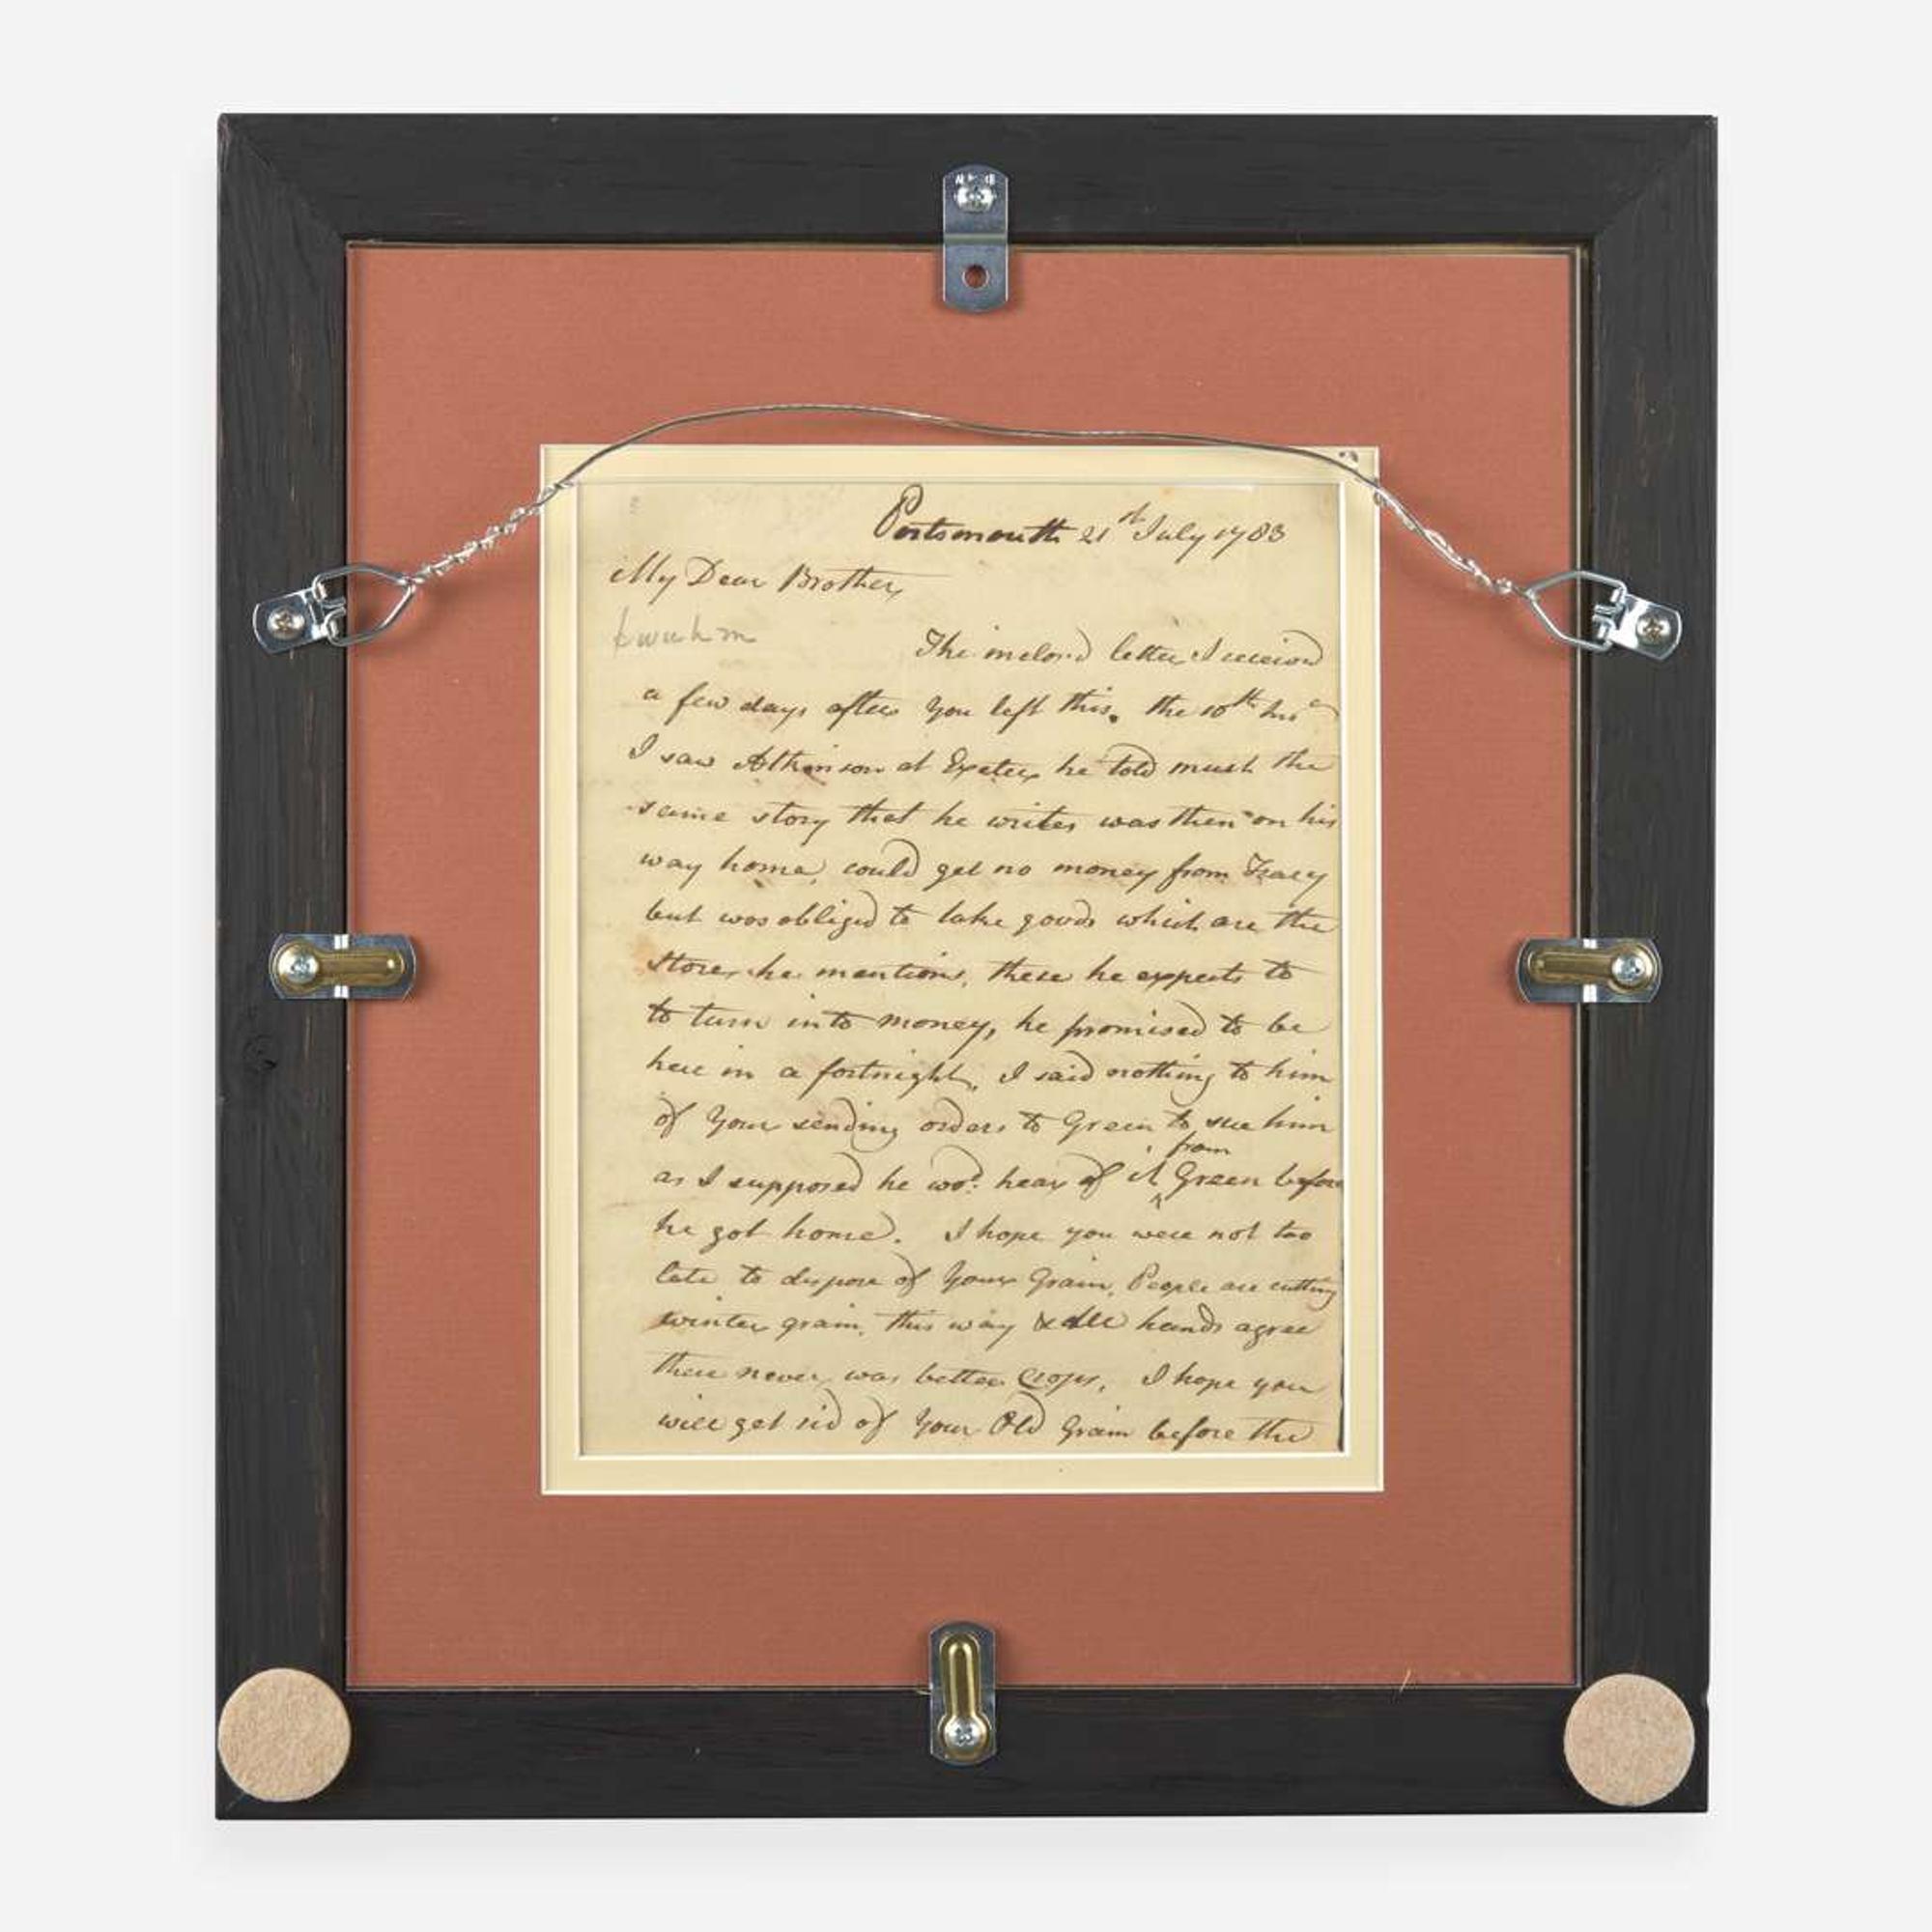 Portsmouth 21st July 1783
My Dear Brother,
The inclosd letter I received
a few days after you left this. the 10th
I saw Atkinson at Exeter he told much the
same story that he writes was then on his
way home, could get no money from Tracy
but was obliged to take goods which are the
stores he mentions, these he expects to
to turn into money, he promised to be
here in a fortnight, I said nothing to him
of your sending orders to Green to sue him
from
as I supposed he wod. hear of it ‸ Green before
he got home. I hope you were not too
late to dispose of your Grain, People are cutting
winter grain, this way & all hands agree
there never was better Crops, I hope you
will get rid of your Old Grain before the